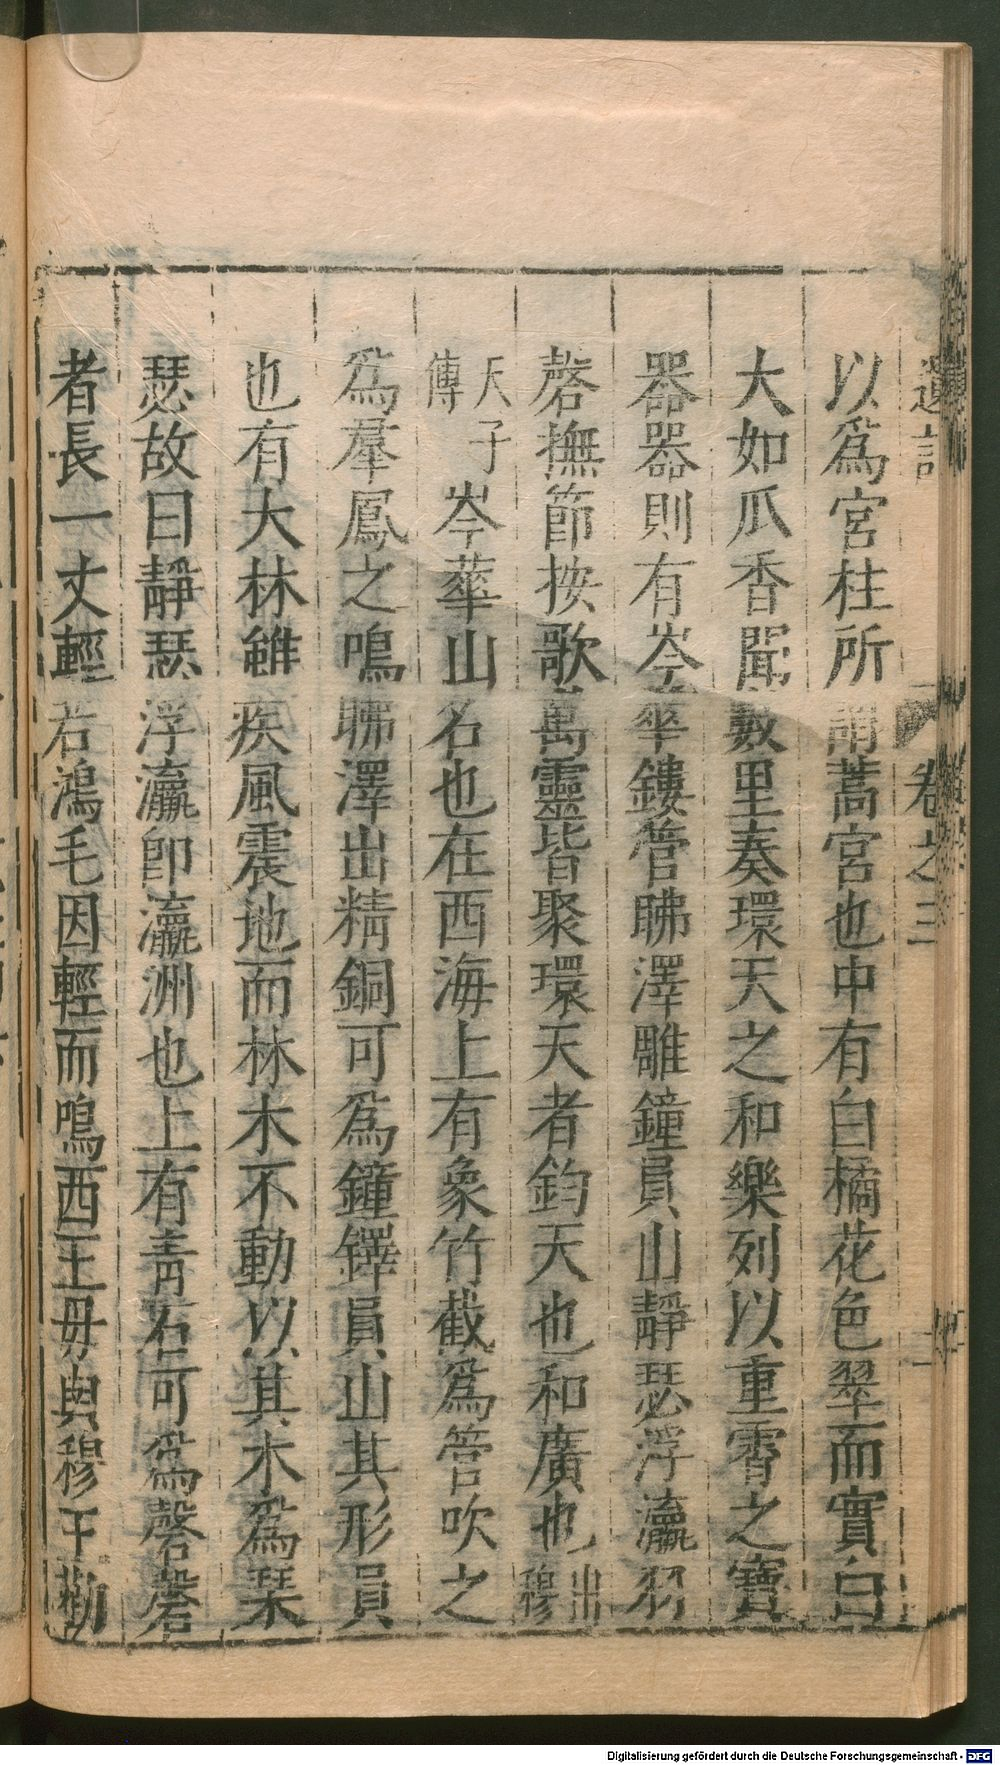 遺記
卷之三
二
以爲宮柱所謂蒿宮也中有白橘花色翠而實白
大如瓜香聞數里奏環天之和樂列以重霄之寶
器器則有岑華鏤管䏿澤雕鐘員山靜瑟浮瀛羽
磬撫節按歌萬靈皆聚環天者鈞天也和廣也出穆
天子傳岑華山名也在西海上有象竹截爲管吹之
爲羣鳳之鳴䏿澤出精銅可爲鐘鐸員山其形員
也有大林雖疾風震地而林木不動以其木爲琹
瑟故曰靜瑟浮瀛卽瀛洲也上有靑石可爲磬磬
者長一丈輕若鴻毛因輕而鳴西王母與穆王歡
Digitalisierung gefördert durch die Deutsche Forschungsgemeinschaft - DFG